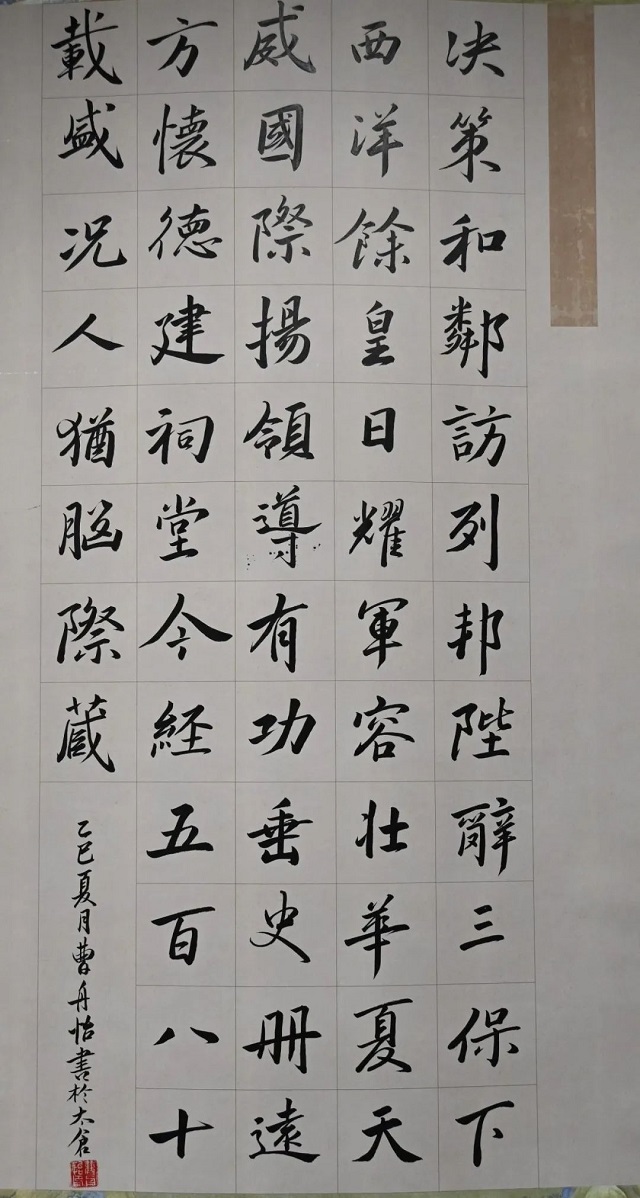 决策和鄰訪列邦陛辭三保下
西洋餘皇日耀軍容壯華夏天
威國際揚領導有功垂史册遠
方懷德建祠堂今経五百八十
載盛况人猶脳際蔵
乙巳夏月曹丹怡書於太倉